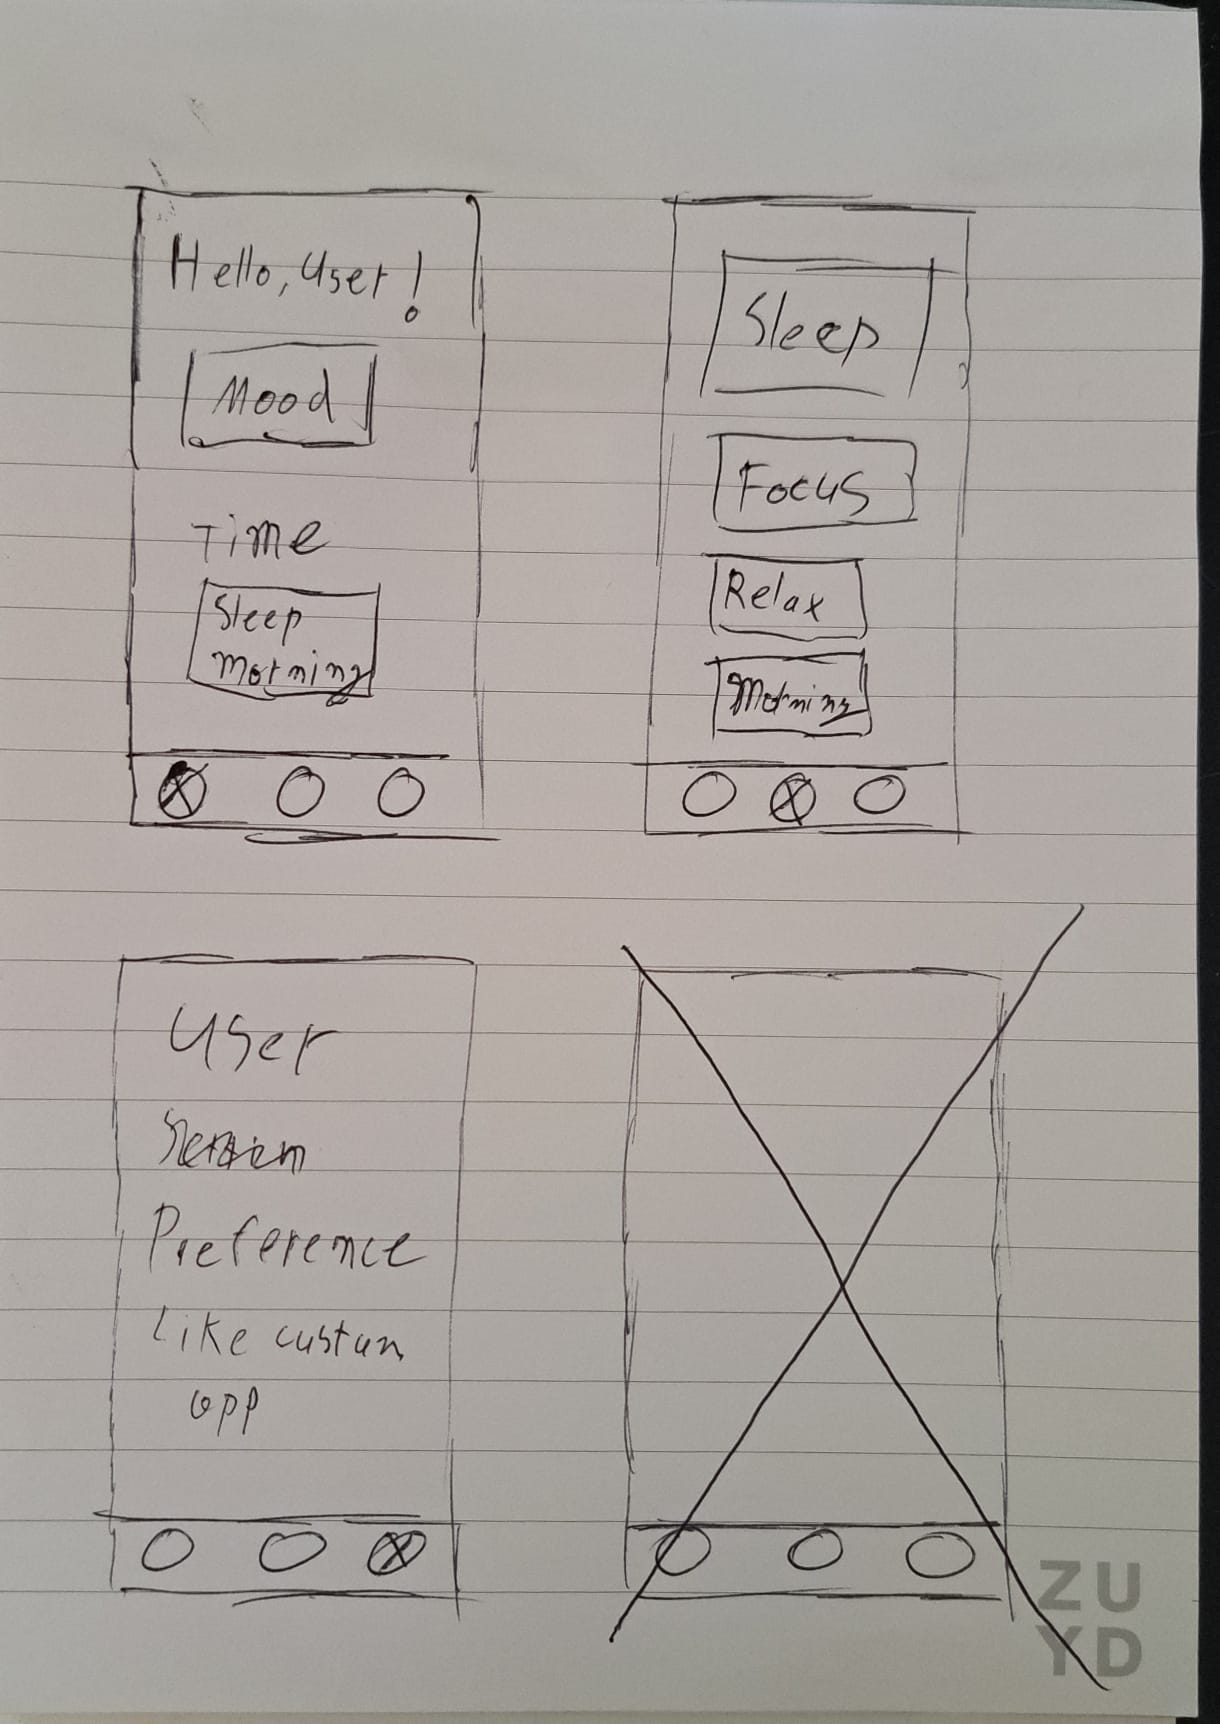 Hello, User!
Mood
Time
Sleep
Morning
Sleep
Focus
Relax
Morning
User
Preference
Like custum
app
ZU
YD